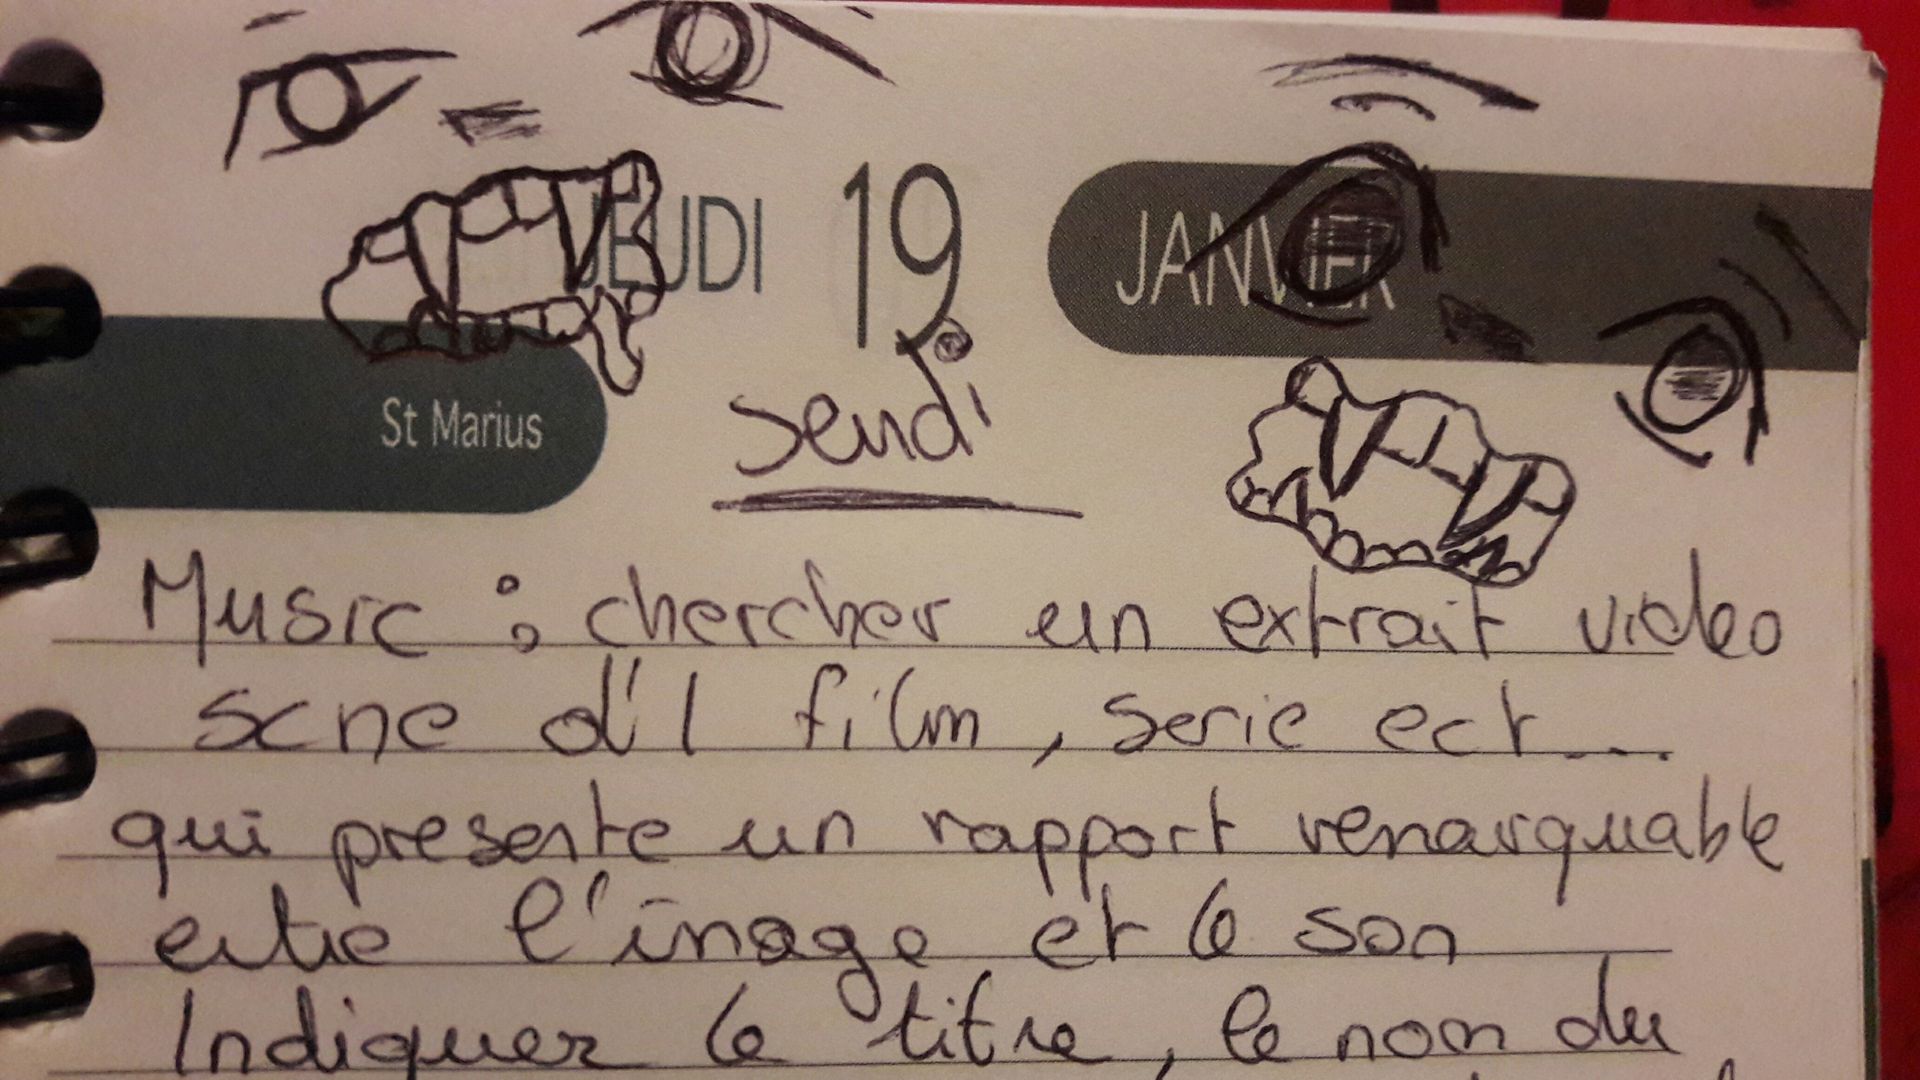 JEUDI 19 JANVIER
St Marius
Music : chercher un extrait video
scne d'1 film, serie ect...
qui presente un rapport remarquable
entre l'image et le son
Indiquer le titre, le nom du